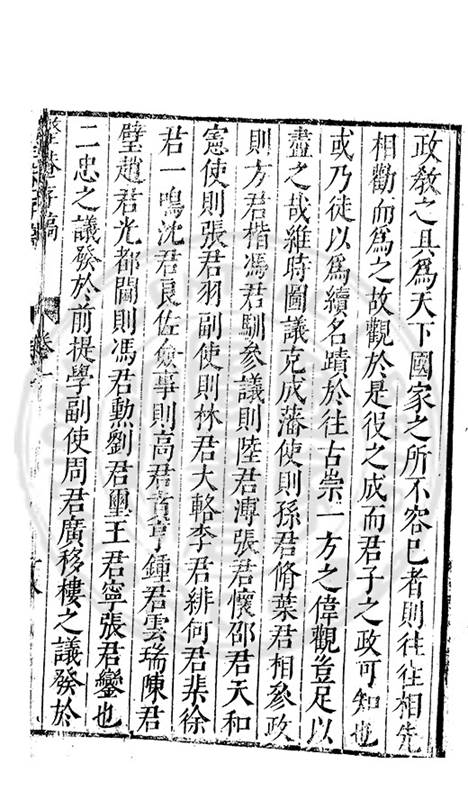 政敎之具爲天下國家之所不容已者則往往相先
相勸而爲之故觀於是役之成而君子之政可知也
或乃徒以爲續名蹟於往古崇一方之偉觀豈足以
盡之哉維時圖議克成藩使則孫君脩葉君相參政
則方君楷馮君馴參議則陸君溥張君懷邵君天和
憲使則張君羽副使則林君大輅李君緋何君棐徐
君一鳴沈君良佐僉事則高君賁亨鍾君雲瑞陳君
璧趙君光都閫則馮君勲劉君璽王君寧張君鑾也
二忠之議發於前提學副使周君廣移樓之議發於
卷一